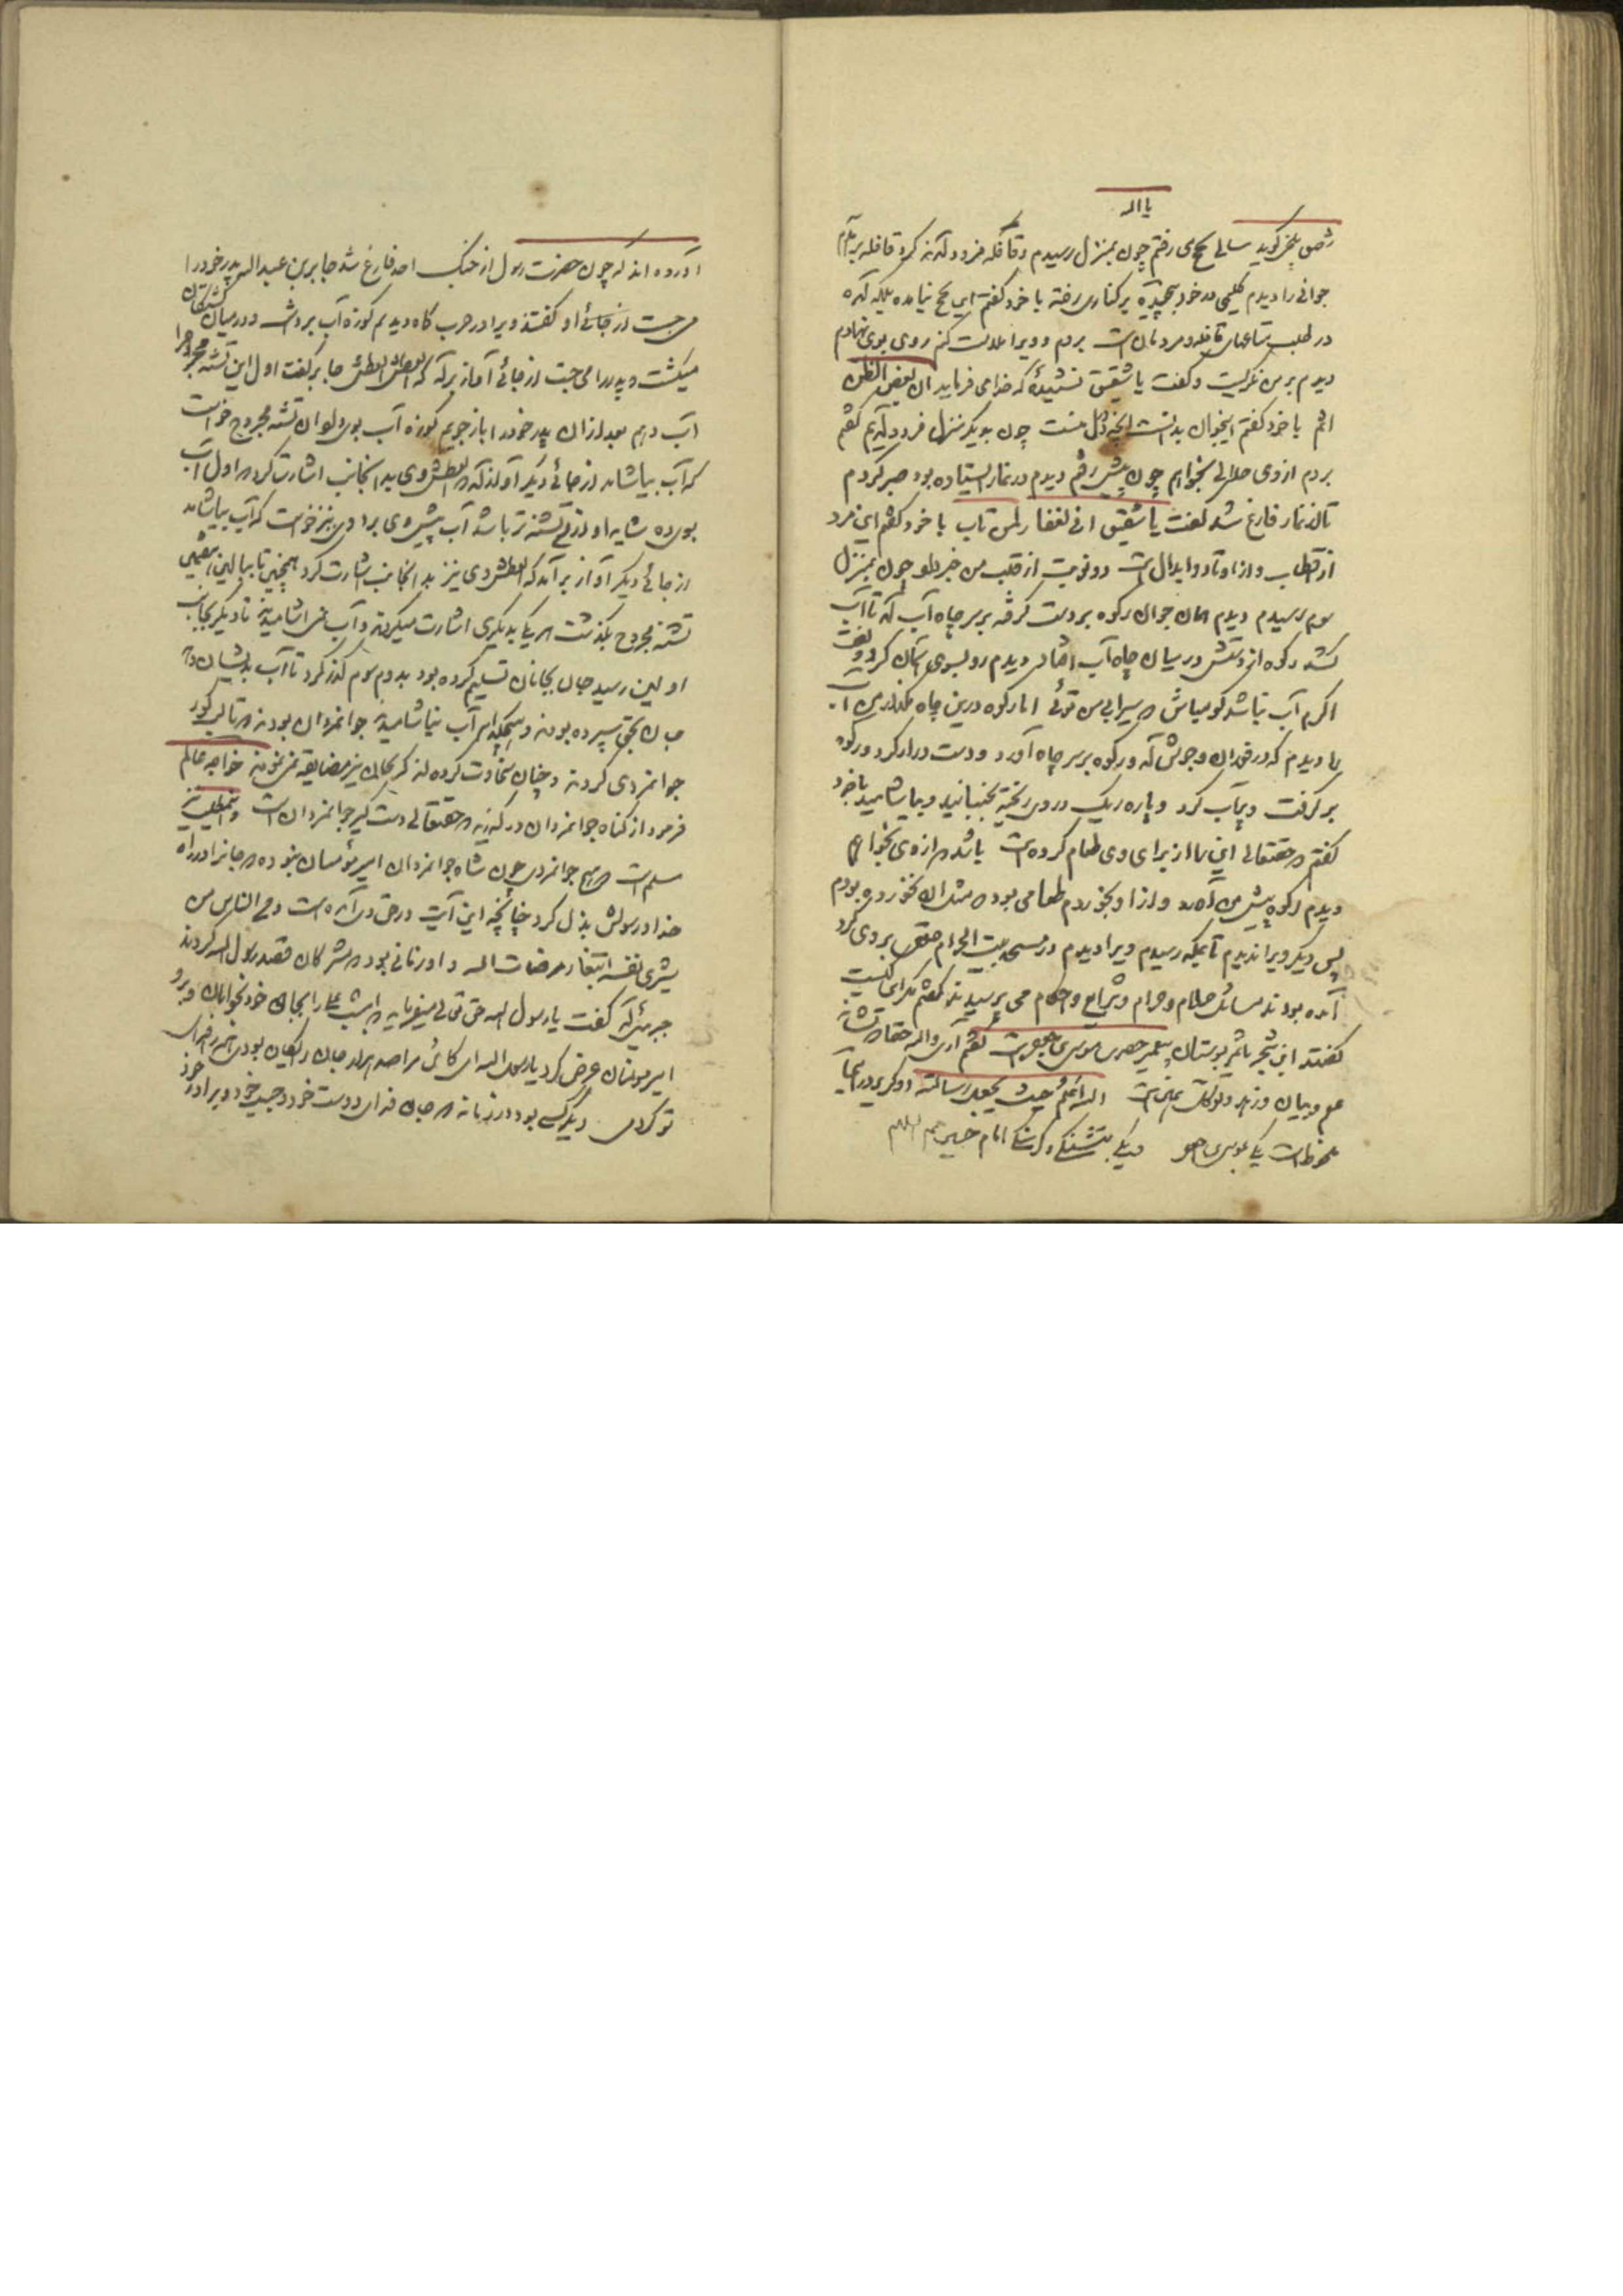 یا الله
شقیق بلخی گوید سالی بحج می رفتم چون بمنزل رسیدم و قافله فرود آمدند کرد قافله برآمدم
جوانی را دیدم گلیمی در خود پیچیده بر کناری رفته با خود گفتم این بحج نیامده بلکه آمده
در طلب متاعهای قافله و مردمان است بروم و ویرا ملامت کنم روی بوی نهادم
دیدم بر من نگریست و گفت یا شقیق نشنیدهٔ که خدا می فرماید ان بعض الظن
اثم با خود گفتم اینجوان بدانست آنچه در دل منست چون بدیگر منزل فرود آمدیم گفتم
بروم از وی حلالی بخواهم چون پیش رفتم دیدم در نماز ایستاده بود صبر کردم
تا از نماز فارغ شد گفت یا شقیق انی لغفار لمن تاب با خود گفتم این مرد
از اقطاب و از اوتاد و ابدال است دو نوبت از قلب من خبر داد چون بمنزل
سوم رسیدم دیدم همان جوان رکوه بر دست گرفته بر سر چاه آب آمد تا آب
کشد رکوه از دستش در میان چاه آب افتاد دیدم رو بسوی آسمان کرد و گفت
اگر آب نباشد گو مباش که سیرابی من توئی اما رکوه درین چاه مگذار من
را دیدم که در فوران و جوش آمد و رکوه بر سر چاه آورد و دست دراز کرد و رکوه
بر گرفت و پر آب کرد و پاره ریک در وی ریخت بجنبانید و بیاشامید با خود
گفتم که حقتعالی این را از برای وی طعام کرده است باشد که از وی بخواهم
دیدم رکوه پیش من آورد و از او بخوردم طعامی بود که مثل آن نخورده بودم
پس دیگر ویرا ندیدم تا بمکه رسیدم ویرا دیدم در مسجد بیت الحرام خلقی بر وی گرد
آمده بودند مسائل حلال و حرام و شرایع و احکام می پرسیدند گفتم مگر این کیست
گفتند این شجر باثمر بوستان پیغمبر حضرت موسی جعفر است گفتم آری والله حقا که نشانه
علم و بیان و زهد و توکلت بمن است الله اعلم حیث یجعل رسالته دو کرب در انجا
محفوظ است یکی موسی جعفر دیگر تشنگی و گرسنگی امام حسین علیهم السلام
آورده اند که چون حضرت رسول از جنگ احد فارغ شد جابر بن عبد الله پدر خود را
می جست از جائی او گفتند ویرا در حرب گاه دیدیم کوزه آب بر دوش و در میان کشتگان
میگشت و پدر را می جست از جائی آواز بر آمد که العطش العطش جابر گفت اول این تشنه مجروح را
آب دهم بعد از ان پدر خود را باز جویم کوزه آب بوی داد ان تشنه مجروح خواست
که آب بیاشامد از جائی دیگر آواز آمد که العطش وی بدانجانب اشارت کرد که اول آب
بوی ده شاید او از من تشنه تر باشد آب پیش وی برد او نیز خواست که آب بیاشامد
از جائی دیگر آواز بر آمد که العطش وی نیز بدانجانب اشارت کرد همچنین تا ببالین هفتمین
تشنه مجروح بگذشت هر یک بدیگری اشارت میکردند و آب نمی آشامیدند تا دیگر بجانب
اولین رسید جان بجانان تسلیم کرده بود بدوم و سوم گذر کرد تا آب بدیشان دهد
جان بحق سپرده بودند و هیچکدام آب نیاشامیدند جوانمردان بودند که تا لب گور
جوانمردی کردند و چنان سخاوت کرده اند که بجان نیز مضایقه نمی نمودند خواجه عالم
فرمود از گناه جوانمردان در گذرید که حقتعالی دست گیر جوانمردان است
مسلم است که هیچ جوانمردی چون شاه جوانمردان امیر مؤمنان نبوده که جانرا در راه
خدا و رسولش بذل کرد چنانچه این آیت در حق وی آمده است و من الناس من
یشری نفسه ابتغاء مرضات الله و او زمانی بود که مشرکان قصد رسول الله کردند
جبرئیل آمد گفت یا رسول الله حق تعالی میفرماید که امشب علی را بجای خود بخوابان و برو
امیر مؤمنان عرض کرد یا رسول الله ای کاش مرا صد هزار جان در میان بودی همه را فدای
تو کردمی دیگر کسی بود در زمانه که جان فدای دوست خود و حبیب خود و برادر خود